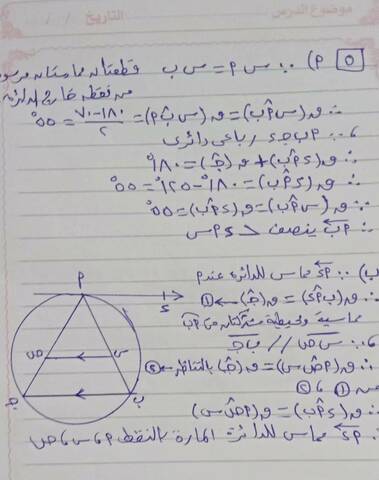 موضوع الدرس
التاريخ / /
٥ (P ∵ سP = سب قطعتان مماستان مرسومتان
من نقطة خارج الدائرة
∴ ق(سP̂ب) = ق(سب̂P) = (١٨٠-٧٠)/٢ = ٥٥°
∵ Pبجء رباعى دائرى
∴ ق(ءP̂ب) + ق(ج̂) = ١٨٠°
∴ ق(ءP̂ب) = ١٨٠° - ١٢٥° = ٥٥°
∴ ق(سP̂ب) = ق(ءP̂ب) = ٥٥°
∴ Pب ينصف > ءPس
ب) ∵ Pء مماس للدائرة عند P
∴ ق(ءP̂ب) = ق(ج̂) ← ①
مماسية ومحيطية مشتركتان فى Pب
∵ سص // بج
∴ ق(Pص̂س) = ق(ج̂) بالتناظر ← ②
من ① ، ②
∴ ق(ءP̂ب) = ق(Pص̂س)
∴ Pء مماس للدائرة المارة بالنقط P ، س ، ص
P
ء
ص
س
ج
ب